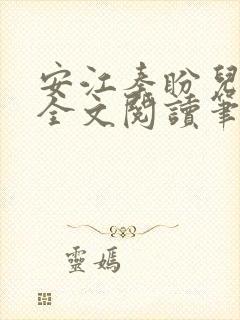 安江秦盼兒
全文閱讀筆
靈媽